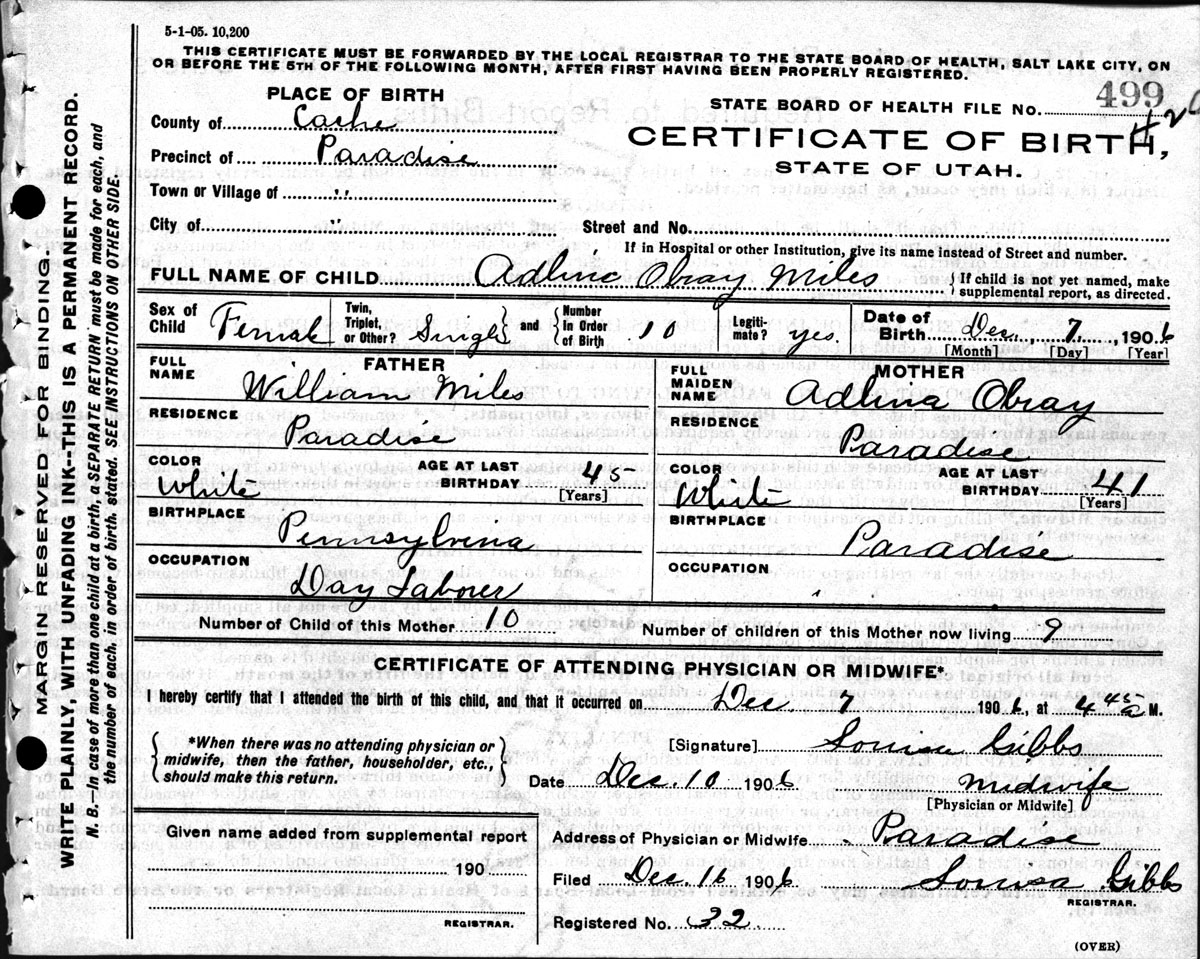 5-1-05. 10,200
THIS CERTIFICATE MUST BE FORWARDED BY THE LOCAL REGISTRAR TO THE STATE BOARD OF HEALTH, SALT LAKE CITY, ON
OR BEFORE THE 5TH OF THE FOLLOWING MONTH, AFTER FIRST HAVING BEEN PROPERLY REGISTERED.
MARGIN RESERVED FOR BINDING.
WRITE PLAINLY, WITH UNFADING INK--THIS IS A PERMANENT RECORD.
N. B.—In case of more than one child at a birth, a SEPARATE RETURN must be made for each, and
the number of each, in order of birth, stated. SEE INSTRUCTIONS ON OTHER SIDE.
PLACE OF BIRTH
County of Cache
Precinct of Paradise
Town or Village of "
City of "
STATE BOARD OF HEALTH FILE No. 499
CERTIFICATE OF BIRTH,
STATE OF UTAH.
Street and No.
If in Hospital or other Institution, give its name instead of Street and number.
FULL NAME OF CHILD Adlina Obray Miles { If child is not yet named, make
supplemental report, as directed.
Sex of Child Female Twin, Triplet, or Other? Single and Number In Order of Birth 10 Legitimate? yes. Date of Birth Dec. 7 1906
[Month] [Day] [Year]
FATHER
FULL NAME William Miles
RESIDENCE
Paradise
COLOR White AGE AT LAST BIRTHDAY 45
[Years]
BIRTHPLACE
Pennsylvina
OCCUPATION
Day Laborer
MOTHER
FULL MAIDEN NAME Adlina Obray
RESIDENCE
Paradise
COLOR White AGE AT LAST BIRTHDAY 41
[Years]
BIRTHPLACE
Paradise
OCCUPATION
Number of Child of this Mother 10 Number of children of this Mother now living 9
CERTIFICATE OF ATTENDING PHYSICIAN OR MIDWIFE*
I hereby certify that I attended the birth of this child, and that it occurred on Dec 7 1906, at 4 45 a M.
*When there was no attending physician or
midwife, then the father, householder, etc.,
should make this return.
[Signature] Louisa Gibbs
Date Dec. 10 1906 Midwife
[Physician or Midwife]
Given name added from supplemental report
190
REGISTRAR.
Address of Physician or Midwife Paradise
Filed Dec. 16 1906 Louisa Gibbs
REGISTRAR.
Registered No. 32
(OVER)